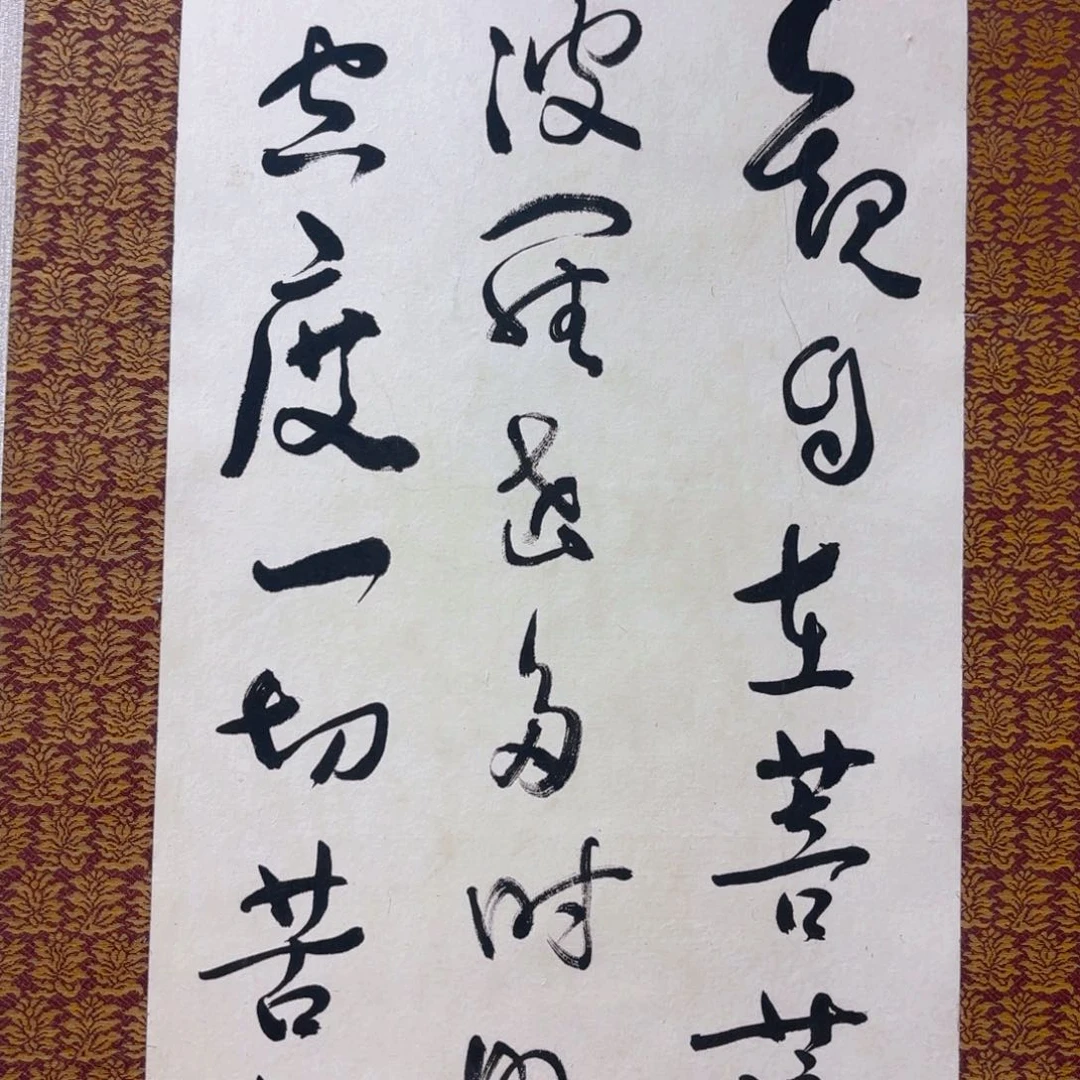 觀自在菩薩
波羅蜜多時照
空度一切苦